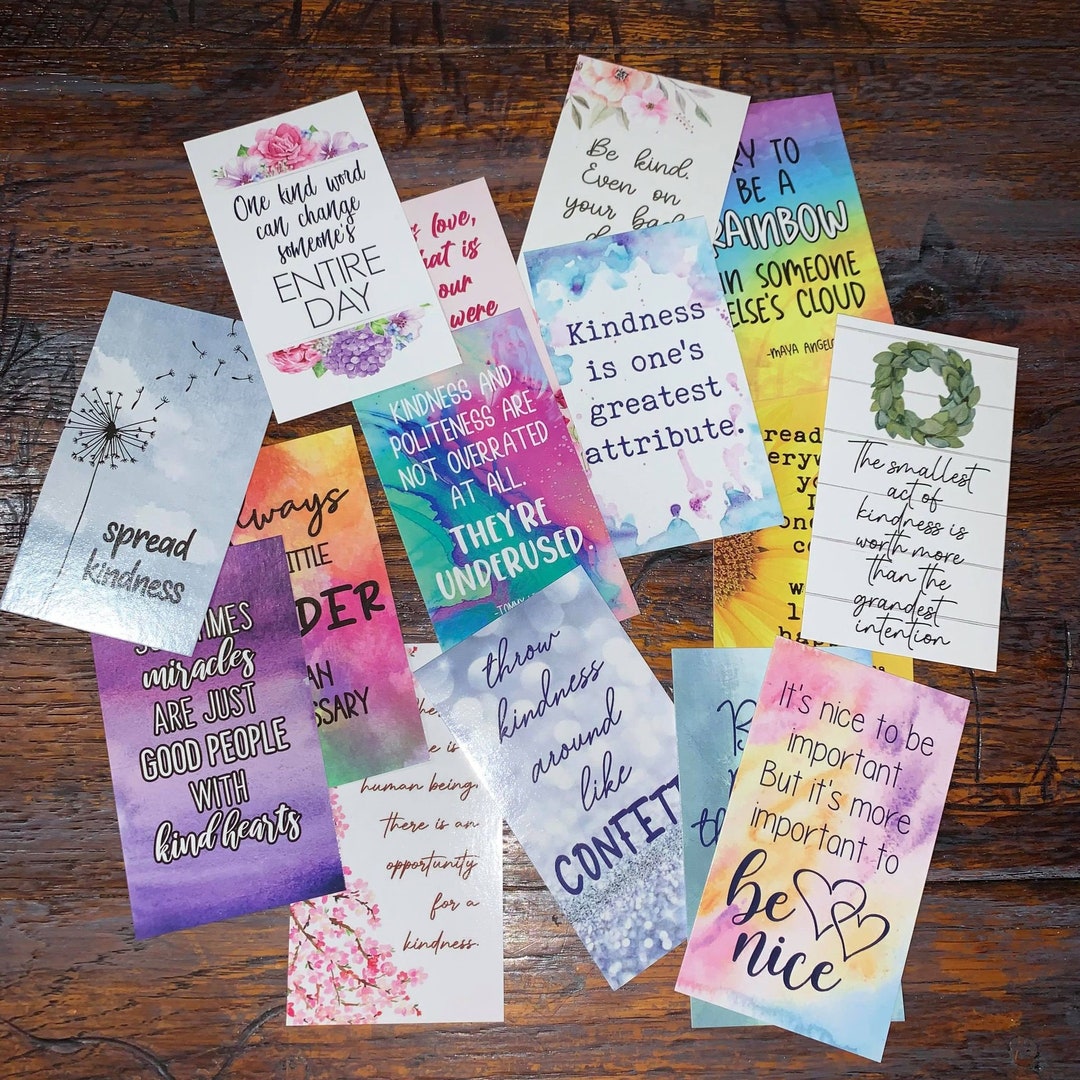 One kind word
can change
someone's
ENTIRE
DAY
love,
is
our
were
Be kind.
Even on
your
TO
BE A
RAINBOW
IN SOMEONE
ELSE'S CLOUD
-MAYA
Kindness
is one's
greatest
attribute.
KINDNESS AND
POLITENESS ARE
NOT OVERRATED
AT ALL.
THEY'RE
UNDERUSED.
The smallest
act of
kindness is
worth more
than the
grandest
intention
spread
kindness
miracles
ARE JUST
GOOD PEOPLE
WITH
kind hearts
human being,
there is an
opportunity
for a
kindness.
throw
kindness
around
like
It's nice to be
important.
But it's more
important to
be
nice